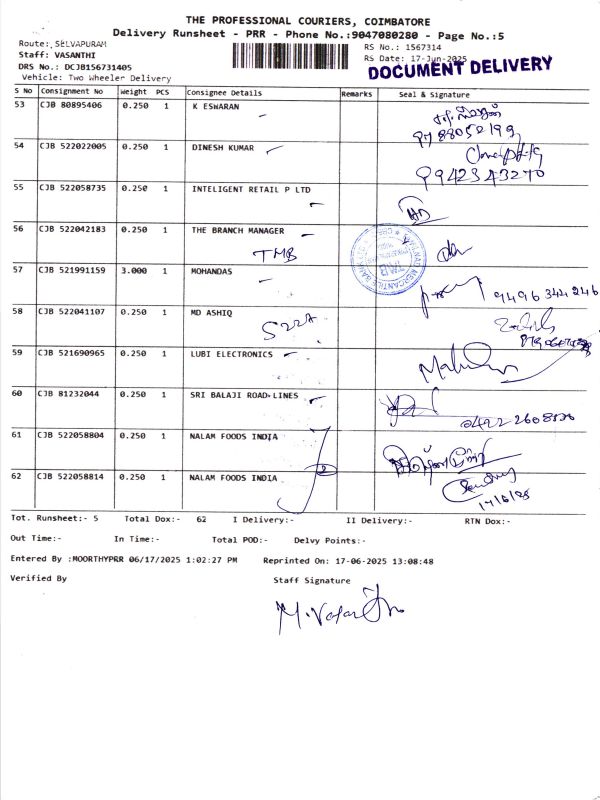 THE PROFESSIONAL COURIERS, COIMBATORE
Delivery Runsheet - PRR - Phone No.:9047080280 - Page No.:5
Route: SELVAPURAM
RS No.: 1567314
Staff: VASANTHI
RS Date: 17-Jun-2025
DRS No.: DCJB156731405
DOCUMENT DELIVERY
Vehicle: Two Wheeler Delivery
S No Consignment No Weight PCS Consignee Details Remarks Seal & Signature
53 CJB 80895406 0.250 1 K ESWARAN
54 CJB 522022005 0.250 1 DINESH KUMAR
55 CJB 522058735 0.250 1 INTELIGENT RETAIL P LTD
56 CJB 522042183 0.250 1 THE BRANCH MANAGER
TMB
57 CJB 521991159 3.000 1 MOHANDAS
9496344246
58 CJB 522041107 0.250 1 MD ASHIQ
522A
59 CJB 521690965 0.250 1 LUBI ELECTRONICS
60 CJB 81232044 0.250 1 SRI BALAJI ROAD LINES
61 CJB 522058804 0.250 1 NALAM FOODS INDIA
2
62 CJB 522058814 0.250 1 NALAM FOODS INDIA
17/6/25
Tot. Runsheet:- 5 Total Dox:- 62 I Delivery:- II Delivery:- RTN Dox:-
Out Time:- In Time:- Total POD:- Delvy Points:-
Entered By :MOORTHYPRR 06/17/2025 1:02:27 PM Reprinted On: 17-06-2025 13:08:48
Verified By Staff Signature